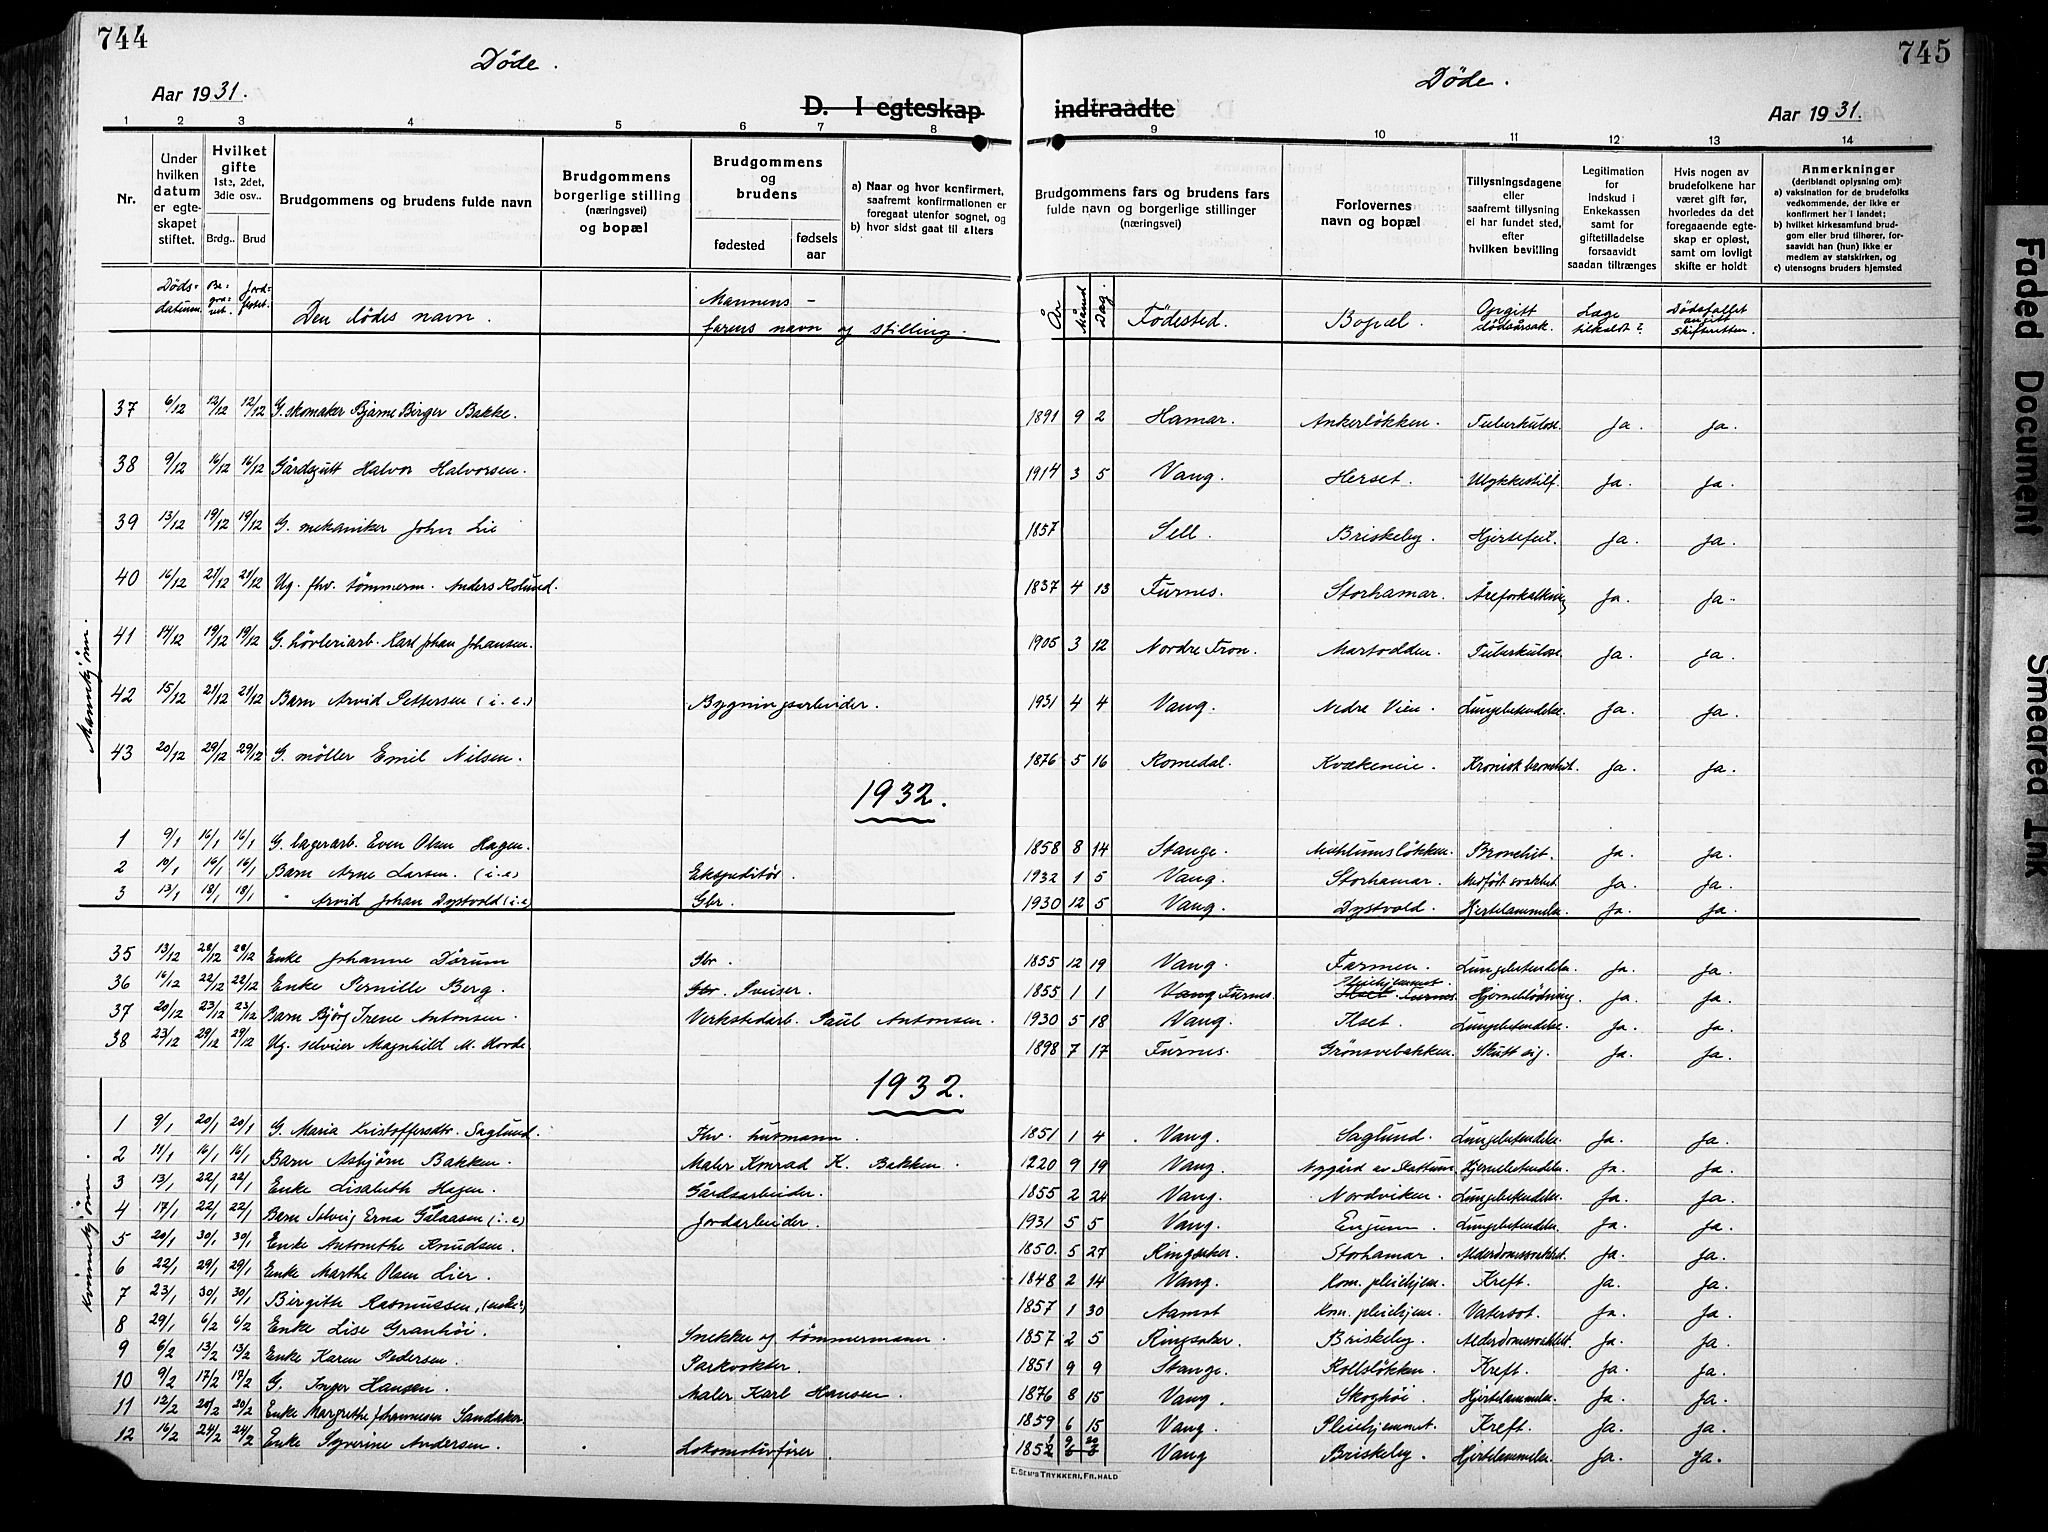 744
Døde.
Aar 1931.
D. I egteskap
1 2 3 4 5 6 7 8
Nr.
Under hvilken datum er egteskapet stiftet.
Hvilket gifte
1ste, 2det, 3die osv..
Brdg.. Brud
Brudgommens og brudens fulde navn
Brudgommens borgerlige stilling (næringsvei) og bopæl
Brudgommens og brudens
fødested
fødsels aar
a) Naar og hvor konfirmert, saafremt konfirmationen er foregaat utenfor sognet, og
b) hvor sidst gaat til alters
Døds-datum. Be-gra-vet. Jord-festet. Den dødes navn. Mannens - farens navn og stilling.
Mannkjøn.
37 6/12 12/12 12/12 G. skomaker Bjarne Birger Bakke.
38 9/12 16/12 16/12 Gårdsgutt Halvor Halvorsen.
39 13/12 19/12 19/12 G. mekaniker John Lie
40 16/12 21/12 21/12 Ug. fhv. tømmerm. Anders Kolund.
41 14/12 19/12 19/12 G. høvleriarb. Karl Johan Johansen.
42 15/12 21/12 21/12 Barn Arvid Pettersen (i. e.) Bygningsarbeider.
43 20/12 29/12 29/12 G. møller Emil Nilsen.
1932.
1 9/1 16/1 16/1 G. lagerarb. Even Olsen Hagen.
2 10/1 16/1 16/1 Barn Arne Larsen. (i.e) Ekspeditør.
3 13/1 18/1 18/1 " Arvid Johan Dystvold (i.e) Gbr.
35 13/12 28/12 28/12 Enke Johanne Dørum Gbr.
36 16/12 22/12 22/12 Enke Pernille Berg. Gbr. Sveiser.
37 20/12 23/12 23/12 Barn Bjørg Irene Antonsen. Verkstedarb. Paul Antonsen.
38 23/12 29/12 29/12 Ug. selveier Magnhild M. Horde
1932.
Kvinnekjøn.
1 9/1 20/1 20/1 G. Maria Kristoffersdtr. Saglund. Fhv. husmann.
2 11/1 16/1 16/1 Barn Asbjørn Bakken. Maler Konrad K. Bakken.
3 13/1 22/1 22/1 Enke Lisabeth Hagen. Gårdsarbeider.
4 17/1 22/1 22/1 Barn Solveig Erna Gålaasen (i.e) Jordarbeider.
5 20/1 30/1 30/1 Enke Antonethe Knudsen.
6 22/1 29/1 29/1 Enke Marthe Olsen Lier.
7 23/1 30/1 30/1 Birgitte Rasmussen, (enke?)
8 29/1 6/2 6/2 Enke Lise Granhøi. Snekker og tømmermann.
9 6/2 13/2 13/2 Enke Karen Pedersen. Parkvokter.
10 9/2 17/2 17/2 G. Inger Hansen. Maler Karl Hansen.
11 12/2 20/2 20/2 Enke Margrethe Johannesen Sandaker.
12 16/2 24/2 24/2 Enke Syverine Andersen. Lokomotivfører.
745
Døde.
Aar 1931.
indtraadte
9 10 11 12 13 14
Brudgommens fars og brudens fars fulde navn og borgerlige stillinger (næringsvei)
Forlovernes navn og bopæl
Tillysningsdagene eller saafremt tillysning ei har fundet sted, efter hvilken bevilling
Legitimation for Indskud i Enkekassen samt for giftetilladelse forsaavidt saadan tiltrænges
Hvis nogen av brudefolkene har været gift før, hvorledes da det foregaaende egteskap er opløst, samt om lovligt skifte er holdt
Anmerkninger (deriblandt oplysning om):
a) vaksination for de brudefolks vedkommende, der ikke er konfirmert her i landet;
b) hvilket kirkesamfund brudgom eller brud tilhører, forsaavidt han (hun) ikke er medlem av statskirken, og
c) utensogns bruders hjemsted
År Måned Dag. Fødested. Bopæl. Opgitt dødsårsak. Læge tilkaldt? Dødsfallet anmeldt skifteretten.
1891 9 2 Hamar. Ankerløkken. Tuberkulose. Ja. Ja.
1914 3 5 Vang. Herset. Ulykkestilf. Ja. Ja.
1857 Sell. Briskeby. Hjertefeil. Ja. Ja.
1837 4 13 Furnes. Storhamar. Åreforkalkning Ja. Ja.
1905 3 12 Nordre Fron. Martodden. Tuberkulose. Ja. Ja.
1931 4 4 Vang. Nedre Vien. Lungebetendelse. Ja. Ja.
1876 5 16 Romedal. Kvækeneie. Kronisk bronchit. Ja. Ja.
1858 8 14 Stange. Bronchit. Ja. Ja.
1932 1 5 Vang. Storhamar. Medfødt svakhet. Ja. Ja.
1930 12 5 Vang. Dystvold. Hjertelammelse. Ja. Ja.
1855 12 19 Vang. Farmen. Lungebetendelse. Ja. Ja.
1855 1 1 Vang Furnes. Pleiehjemmet. Ilset Furnes. Hjerneblødning Ja. Ja.
1930 5 18 Vang. Ilset. Lungebetendelse. Ja. Ja.
1898 7 17 Furnes. Grønsvebakken. Skutt sig. Ja. Ja.
1851 1 4 Vang. Saglund. Lungebetendelse. Ja. Ja.
1220 9 19 Vang. Nygård av Skattum Hjernebetendelse. Ja. Ja.
1855 2 24 Vang. Nordviken. Lungebetendelse. Ja. Ja.
1931 5 5 Vang. Enjum. Lungebetendelse. Ja. Ja.
1850. 5 27 Ringsaker. Storhamar. Alderdomssvakhet. Ja. Ja.
1848 2 14 Vang. Kom. pleiehjem. Kreft. Ja. Ja.
1857 1 30 Aamot Kom. pleiehjem. Vatersot. Ja. Ja.
1857 2 5 Ringsaker. Briskeby. Alderdomssvakhet. Ja. Ja.
1851 9 9 Stange. Kollsløkken. Kreft. Ja. Ja.
1876 8 15 Vang. Skoghøi Hjertelammelse. Ja. Ja.
1859 6 15 Vang. Pleiehjemmet. Kreft. Ja. Ja.
1852 Vang Briskeby. Hjertelammelse. Ja. Ja.
E. SEM'S TRYKKERI, FR.HALD
Faded Document
Smeared Ink